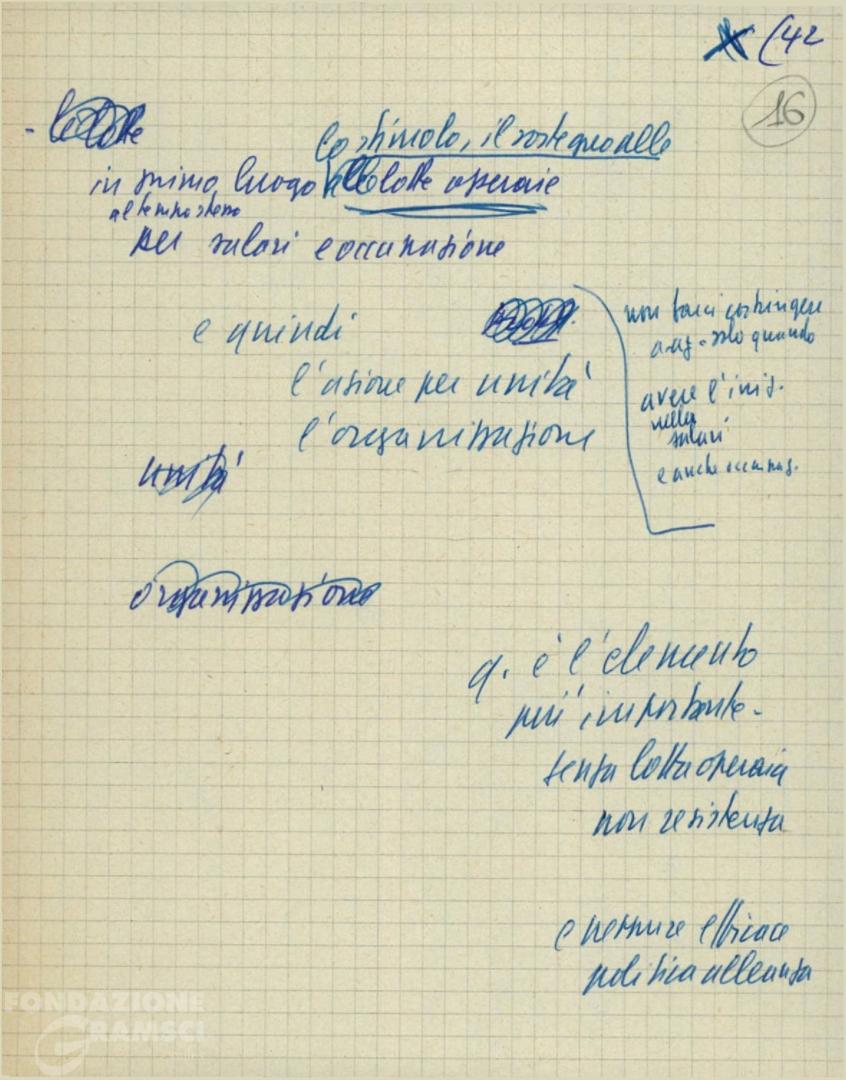 (42
16
- le lotte
lo stimolo, il sostegno alle
in primo luogo lotte operaie
al tempo stesso
per salari e occupazione
e quindi
l'azione per unità
l'organizzazione
non farci costringere
a ag. solo quando
avere l'iniz.
nella
salari
e anche occupaz.
unità
organizzazione
q. è l'elemento
più importante -
senza lotta operaia
non resistenza
e neppure efficace
politica alleanza
FONDAZIONE
GRAMSCI